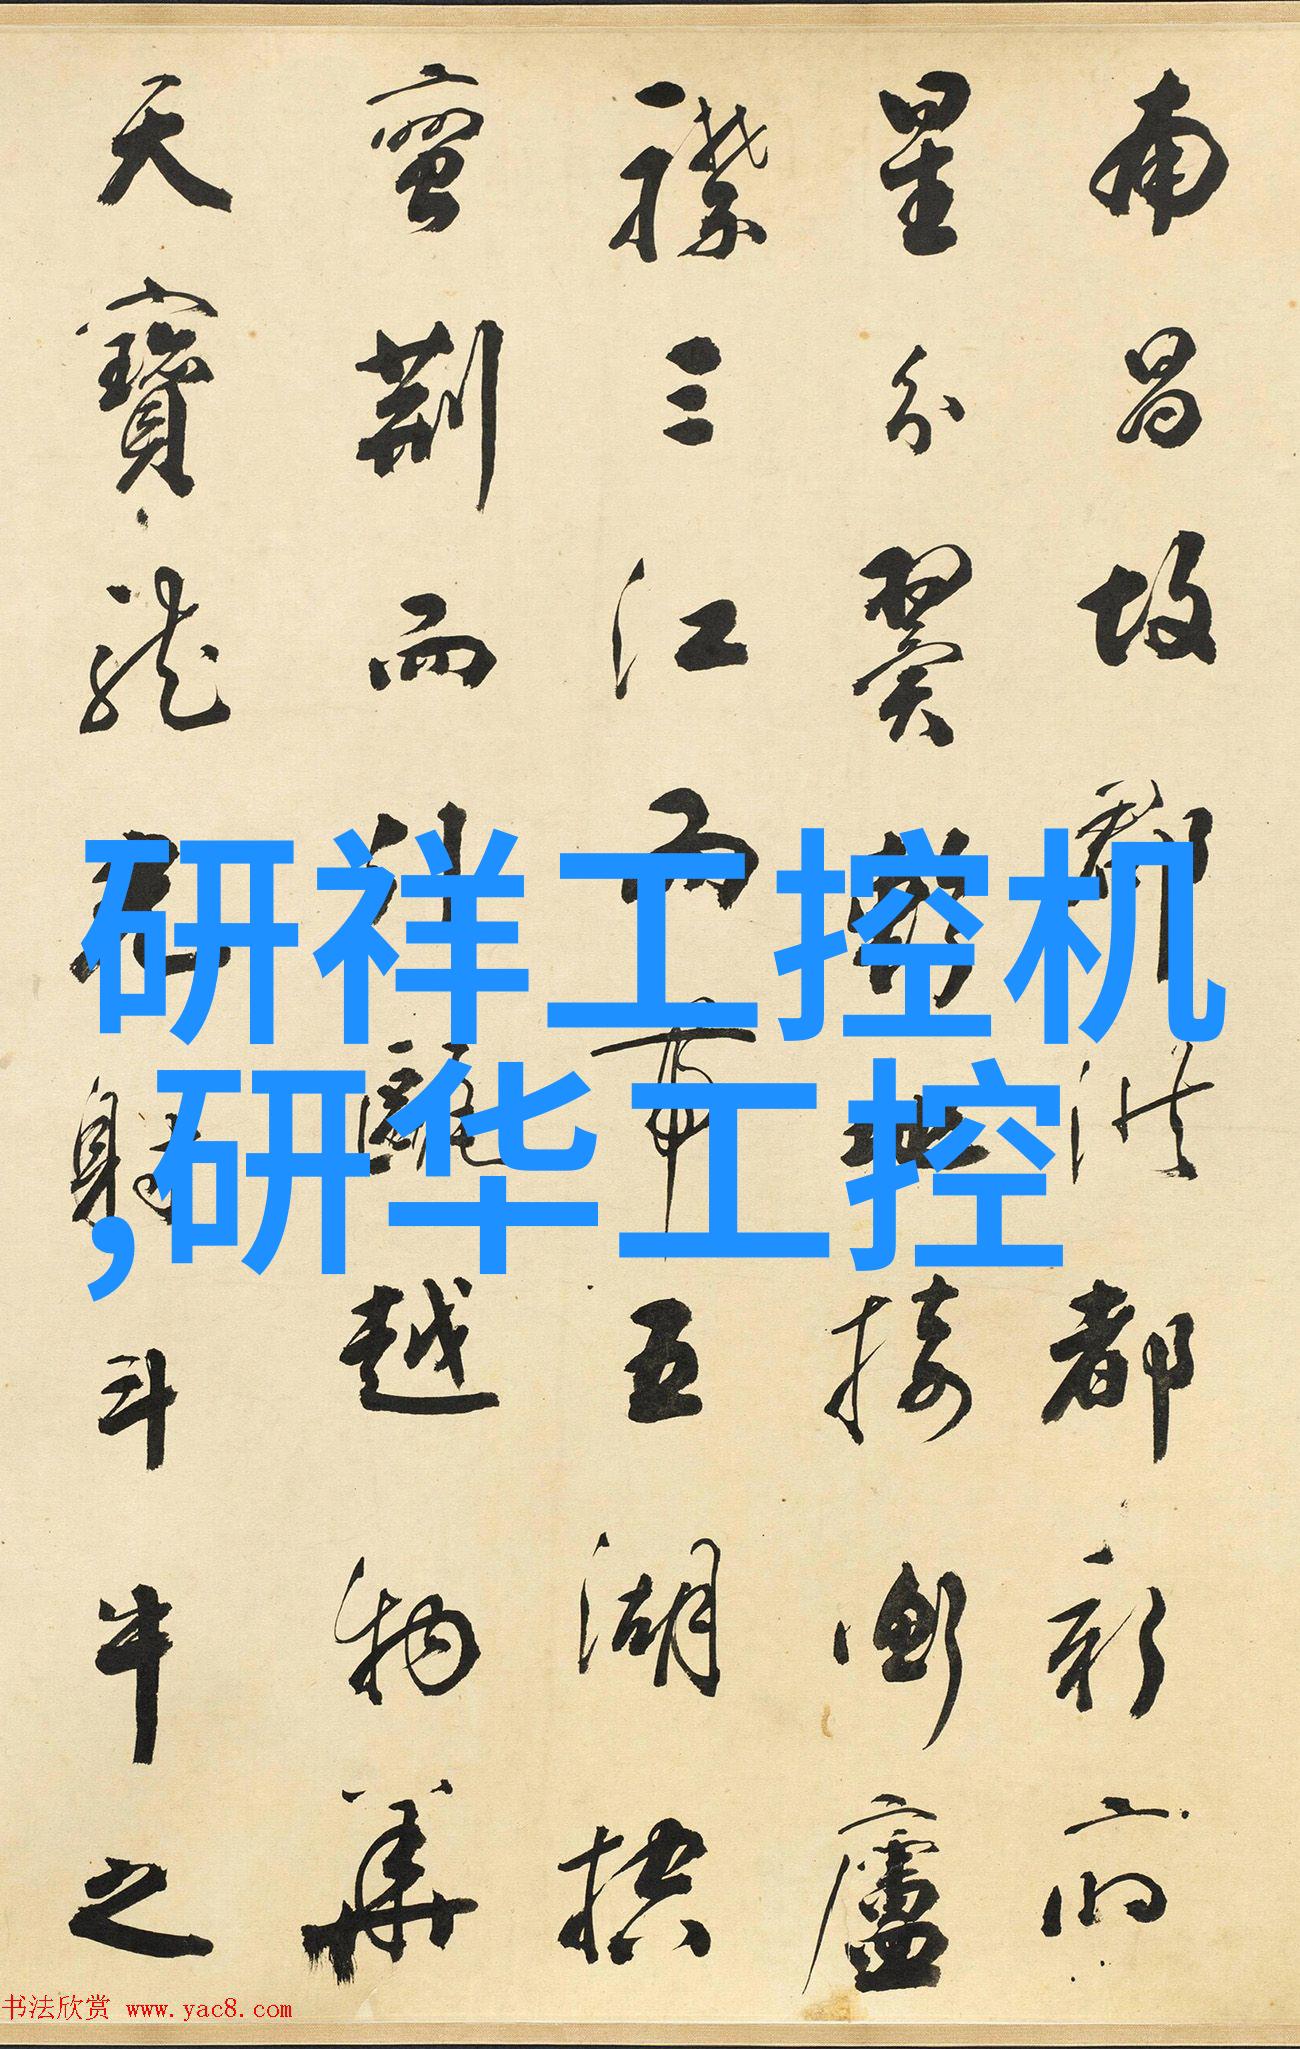 南昌故郡洪都新府
星分翼軫地接衡廬
襟三江而帶五湖控
蠻荆而引甌越物華
天寶龍光射斗牛之
研祥工控机
,研华工控
书法欣赏 www.yac8.com